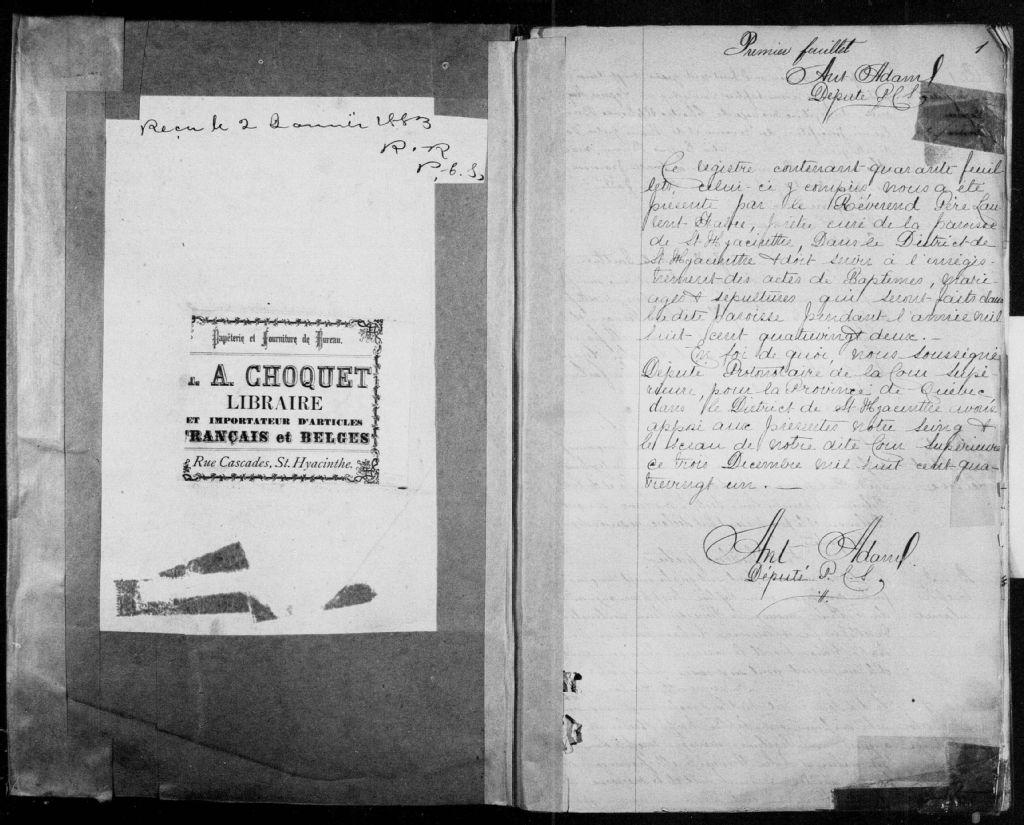 Reçu le 2 Janvier 1883
R. R
P. C. S,
Papéterie et Fourniture de Bureau.
. A. CHOQUET
LIBRAIRE
ET IMPORTATEUR D'ARTICLES
RANÇAIS et BELGES
Rue Cascades, St. Hyacinthe.
Premier feuillet
1
Ant Adam
Député P. C. S,
Ce registre contenant quarante feuil
lets, celui-ci y compris, nous a été
présenté par le Révérend Père
prêtre curé de la paroisse
de St Hyacinthe, Dans le District de
St Hyacinthe & doit servir à l'enrégis-
trement des actes de Baptêmes, mari-
ages & sépultures qui seront faits dans
la dite Paroisse pendant l'année mil
huit cent quatrevingt deux. —
En foi de quoi, nous soussigné
Député Protonotaire de la Cour Supé-
rieure, pour la Province de Québec,
dans le District de St Hyacinthe avons
apposé aux présentes notre seing &
le sceau de notre dite Cour Supérieure
ce trois Décembre mil huit cent qua-
trevingt un. —
Ant Adam.
Député P. C. S,